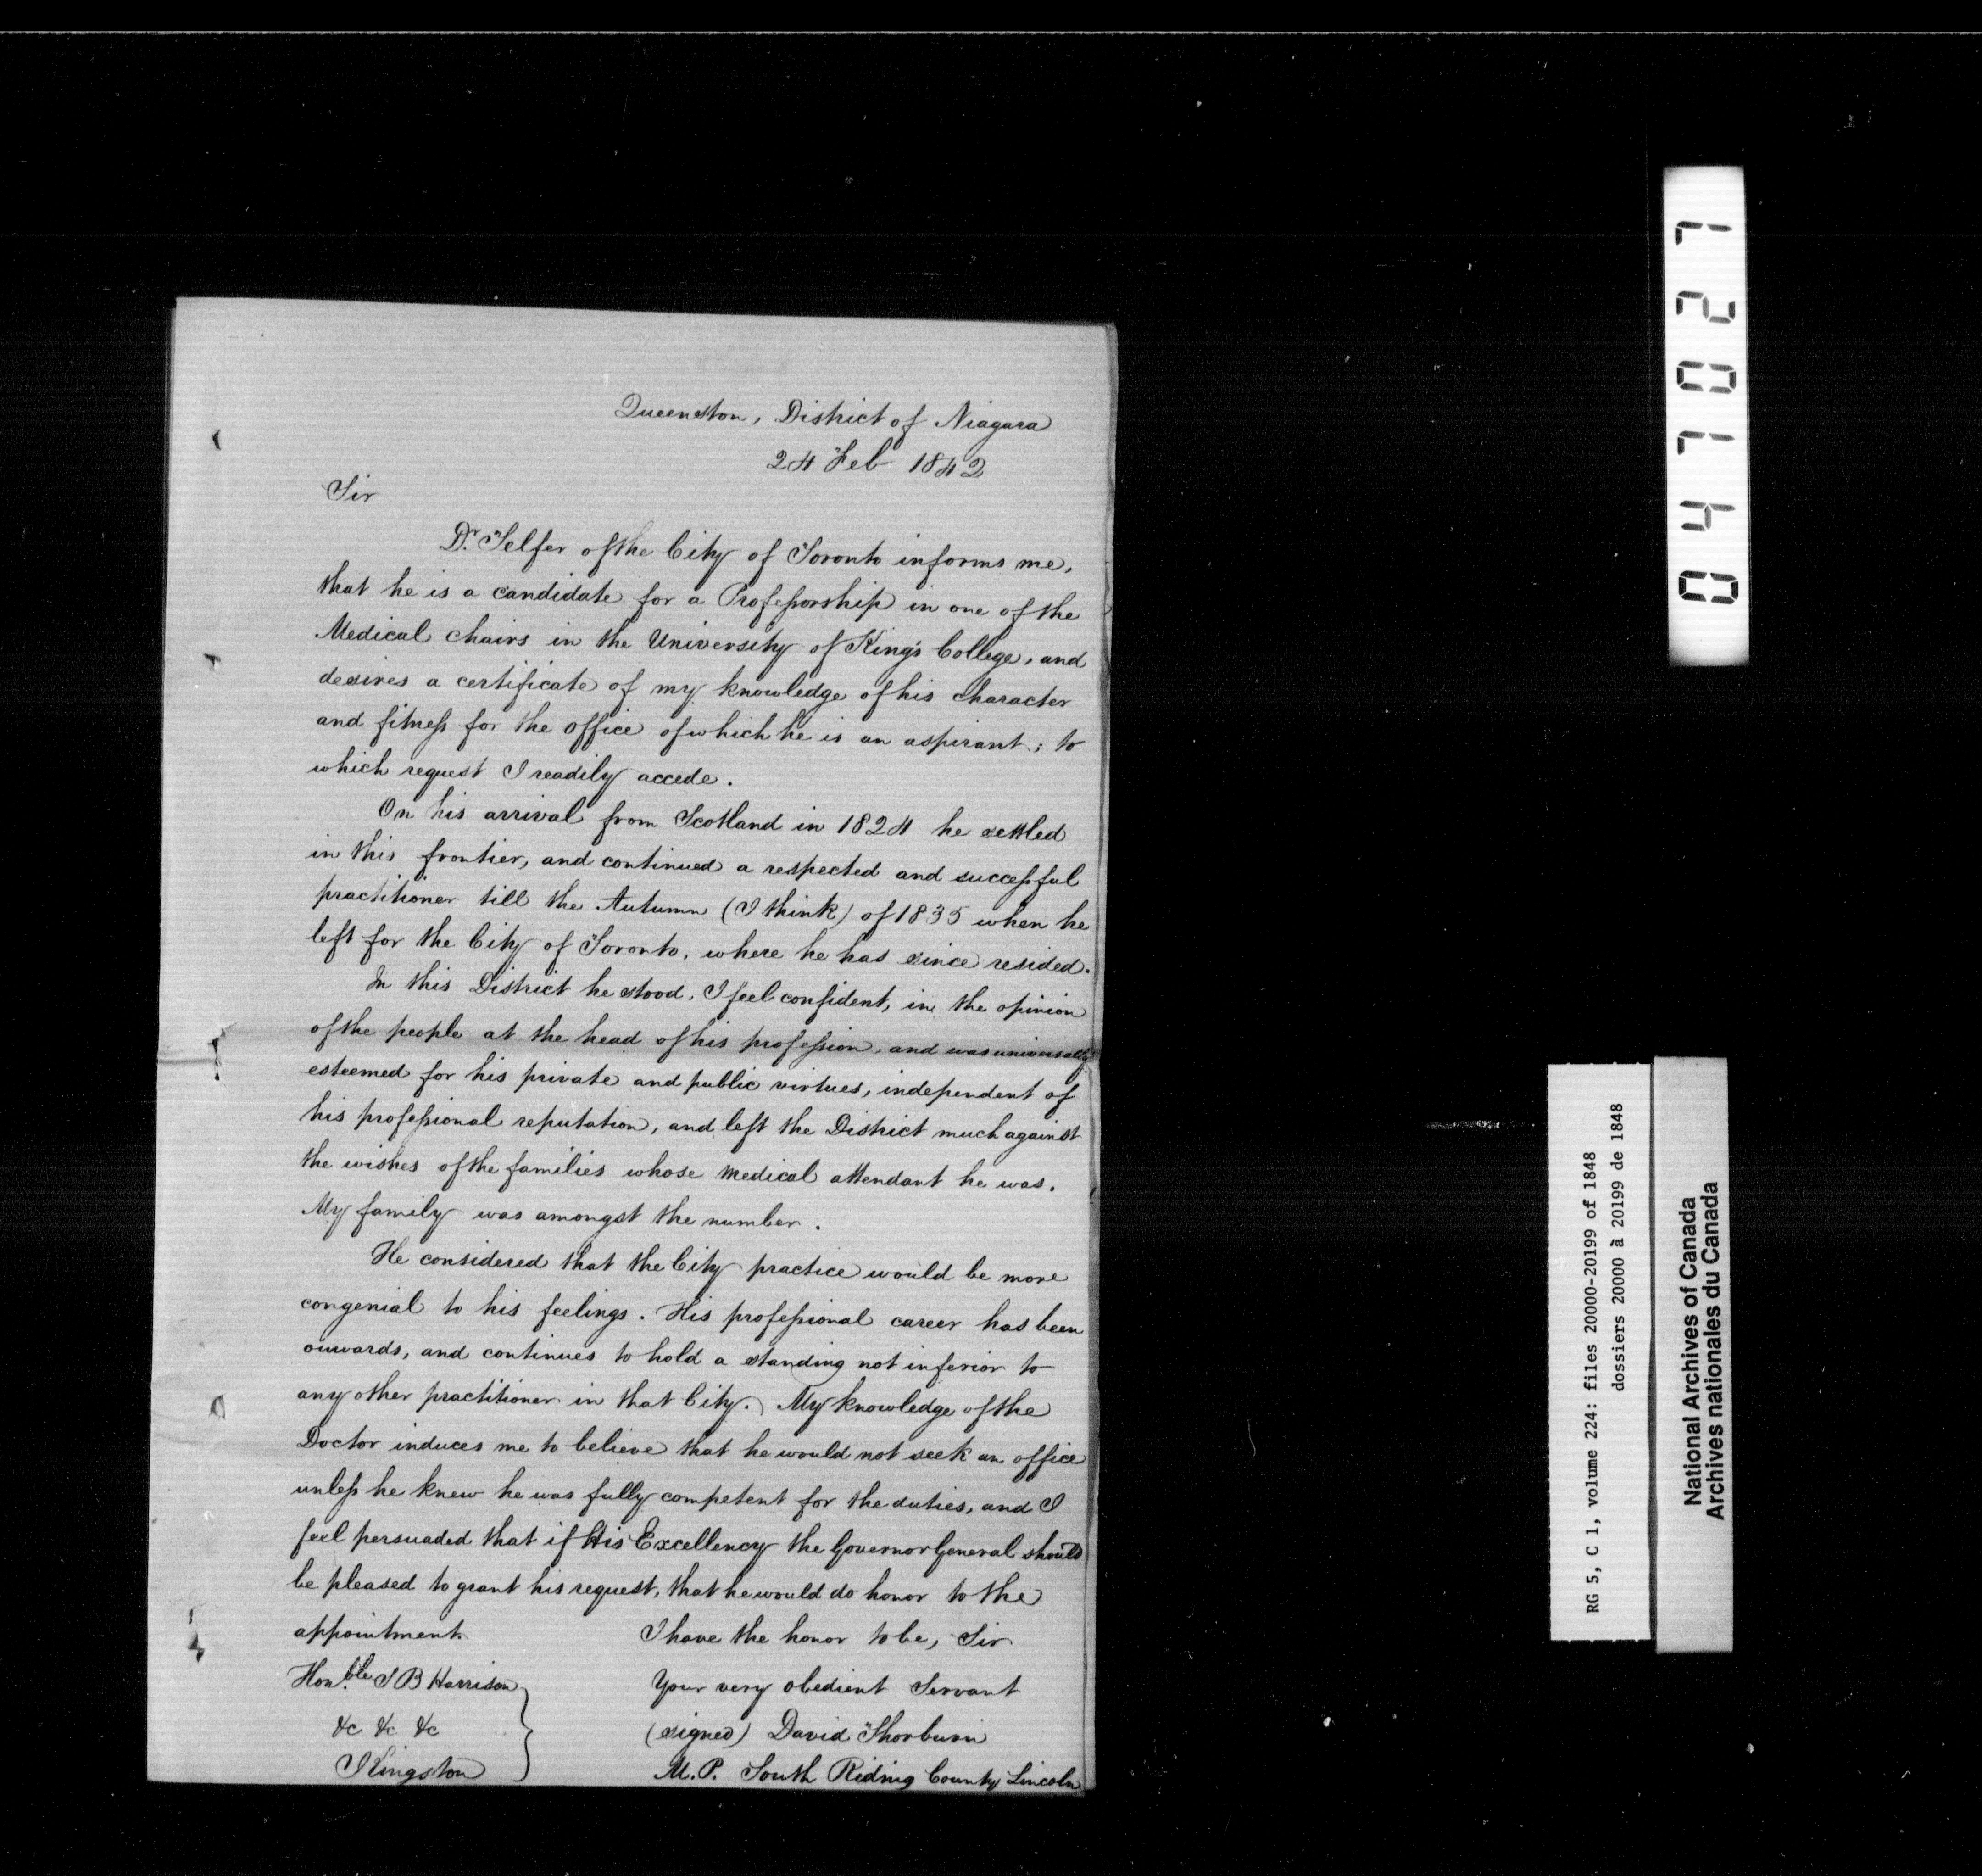 Queenston, District of Niagara
24 Feb 1842
Sir
Dr. Telfer of the City of Toronto informs me,
that he is a candidate for a Professorship in one of the
Medical chairs in the University of King's College, and
desires a certificate of my knowledge of his character
and fitness for the office of which he is an aspirant; to
which request I readily accede.
On his arrival from Scotland in 1824 he settled
in this frontier, and continued a respected and successful
practitioner till the Autumn (I think) of 1835 when he
left for the City of Toronto, where he has since resided.
In this District he stood, I feel confident, in the opinion
of the people at the head of his profession, and was universally
esteemed for his private and public virtues, independent of
his professional reputation, and left the District much against
the wishes of the families whose medical attendant he was.
My family was amongst the number.
He considered that the City practice would be more
congenial to his feelings. His professional career has been
onwards, and continues to hold a standing not inferior to
any other practitioner in that City. My knowledge of the
Doctor induces me to believe that he would not seek an office
unless he knew he was fully competent for the duties, and I
feel persuaded that if His Excellency the Governor General should
be pleased to grant his request, that he would do honor to the
appointment
I have the honor to be, Sir
Your very obedient Servant
(signed) David Thorburn
M.P. South Riding County Lincoln
Honble S B Harrison
&c &c &c
Kingston
047027
RG 5, C 1, volume 224: files 20000-20199 of 1848
dossiers 20000 à 20199 de 1848
National Archives of Canada
Archives nationales du Canada